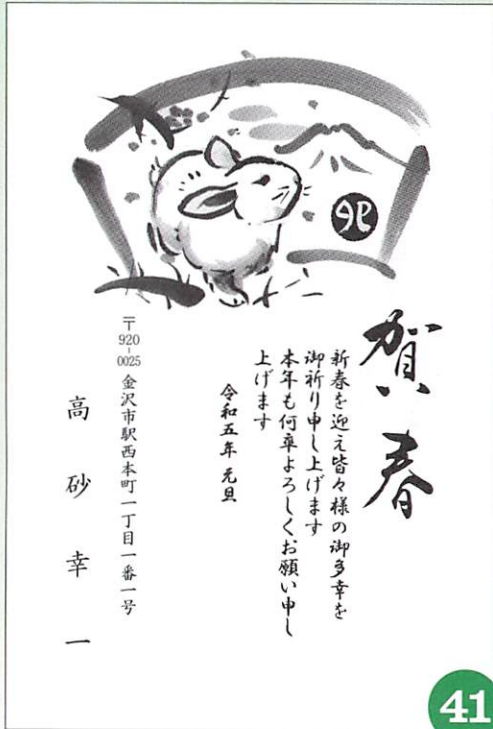 卯
賀春
新春を迎え皆々様の御多幸を
御祈り申し上げます
本年も何卒よろしくお願い申し
上げます
令和五年 元旦
〒920-0025 金沢市駅西本町一丁目一番一号
高砂幸一
41